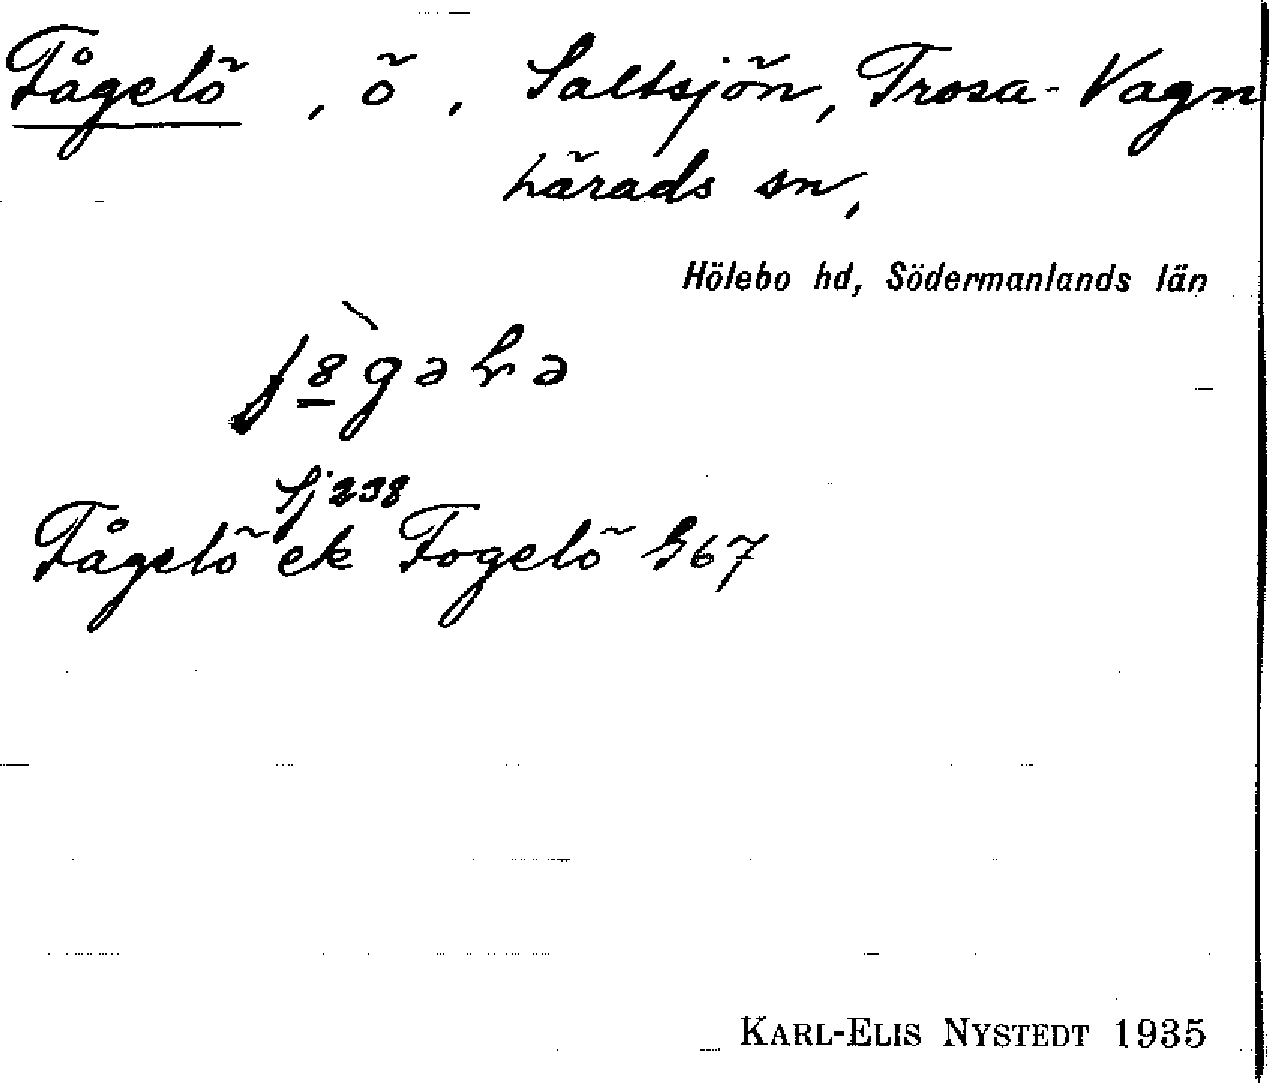 Fågelö, ö, Saltsjön, Trosa-Vagn
härads sn,
Hölebo hd, Södermanlands län
Sj 238
Fågelö ek Fogelö G67
KARL-ELIS NYSTEDT 1935